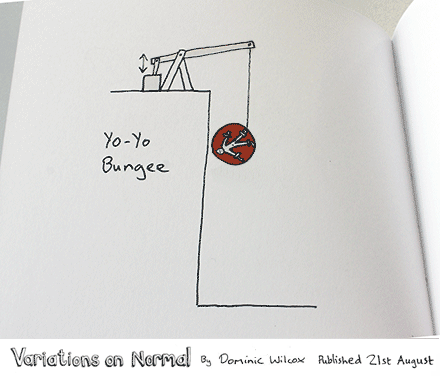 Yo-Yo
Bungee
Variations on Normal By Dominic Wilcox Published 21st August